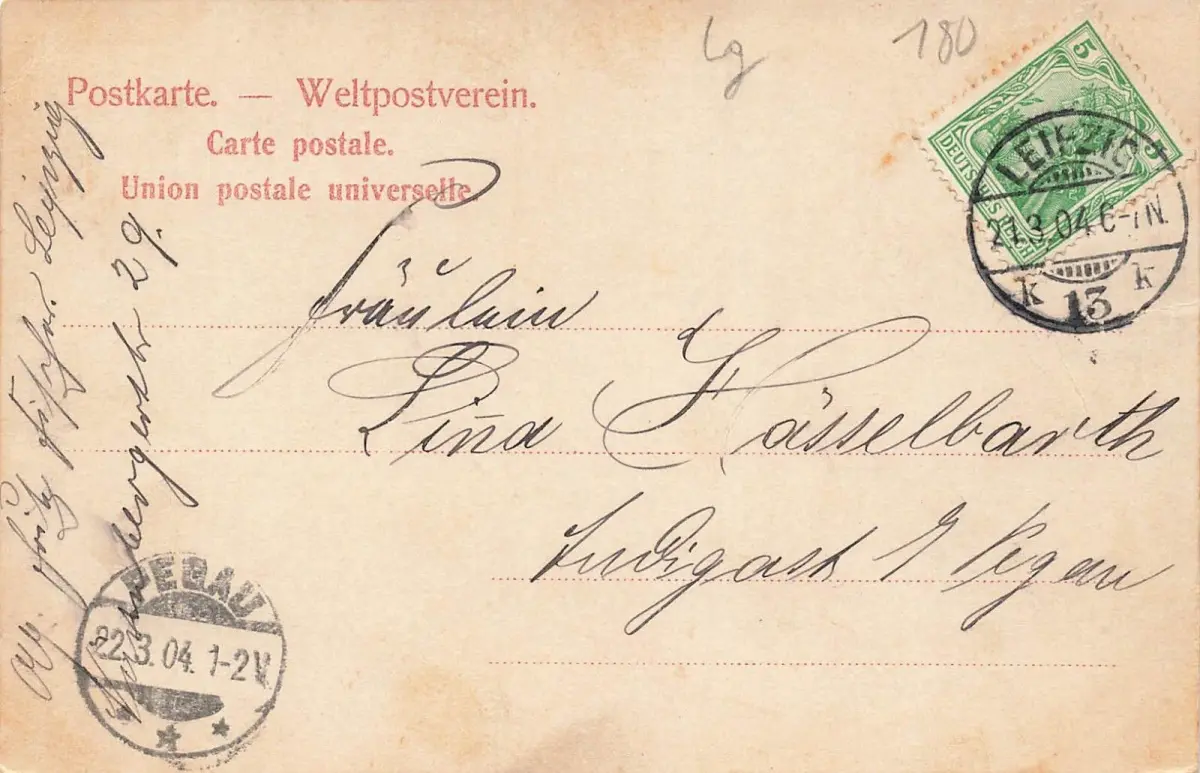 Lg
180
Postkarte. — Weltpostverein.
Carte postale.
Union postale universelle.
5 5
DEUTSCHES REICH
LEIPZIG
21.3.04. 6-7N.
k 13 k
Fräulein
Lina Hässelbarth
Audigast / Pegau
Fritz Leipzig
29.
PEGAU
22.3.04. 1-2V.